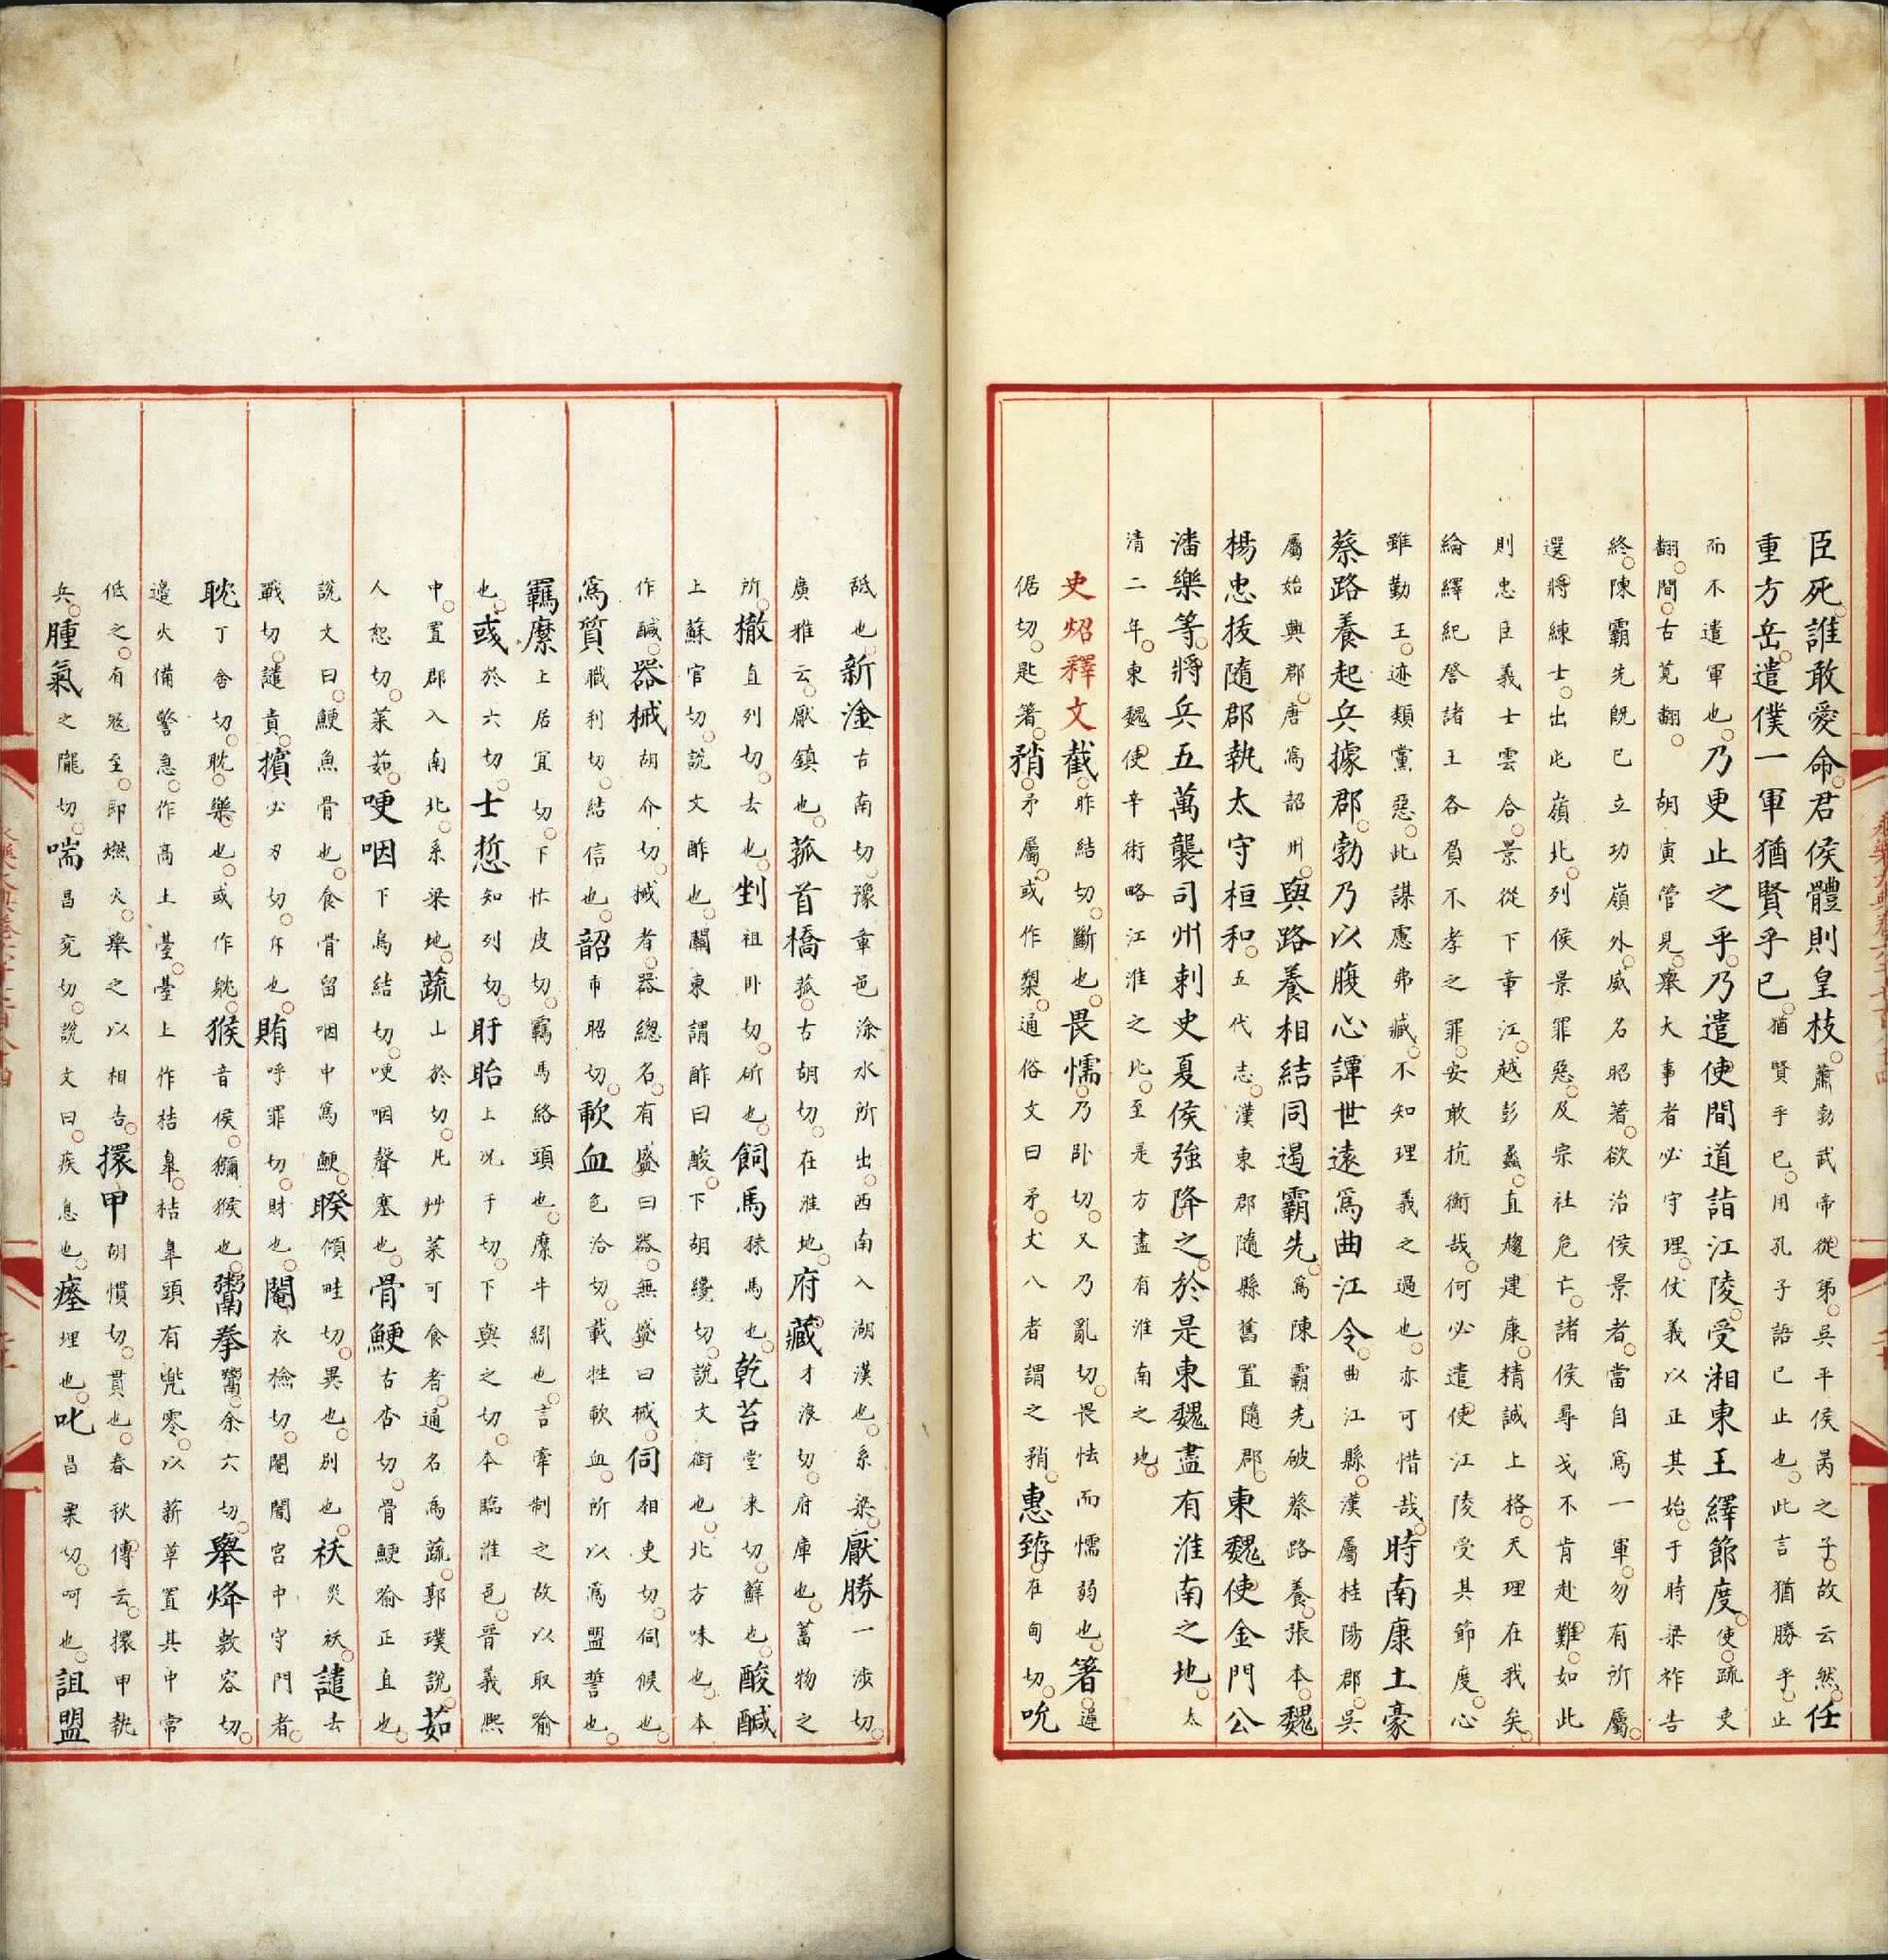 臣死誰敢愛命君侯體則皇枝蕭勃武帝從弟吳平侯昺之子故云然任
重方岳遣僕一軍猶賢乎已猶賢乎已用孔子語已止也此言猶勝乎止
而不遣軍也乃更止之乎乃遣使間道詣江陵受湘東王繹節度使疏吏
翻間古莧翻 胡寅管見舉大事者必守理仗義以正其始于時梁祚告
終陳霸先既已立功嶺外威名昭著欲治侯景者當自爲一軍勿有所屬
選將練士出此嶺北列侯景罪惡及宗社危亡諸侯尋戈不肯赴難如此
則忠臣義士雲合景從下章江越彭蠡直趨建康精誠上格天理在我矣
綸繹紀詧諸王各負不孝之罪安敢抗衡哉何必遣使江陵受其節度心
雖勤王迹類黨惡此謀慮弗臧不知理義之過也亦可惜哉時南康土豪
蔡路養起兵據郡勃乃以腹心譚世遠爲曲江令曲江縣漢屬桂陽郡吳
屬始興郡唐爲韶州與路養相結同遏霸先爲陳霸先破蔡路養張本魏
楊忠拔隨郡執太守桓和五代志漢東郡隨縣舊置隨郡東魏使金門公
潘樂等將兵五萬襲司州刺史夏侯強降之於是東魏盡有淮南之地太
清二年東魏使辛術略江淮之北至是方盡有淮南之地
史炤釋文截昨結切斷也畏懦乃卧切又乃亂切畏怯而懦弱也箸遲
倨切匙箸矟矛屬或作槊通俗文曰矛丈八者謂之矟惠臶在甸切吮
䑛也新淦古南切豫章邑淦水所出西南入湖漢也系梁厭勝一涉切
廣雅云厭鎮也菰首橋菰古胡切在淮地府藏才浪切府庫也蓄物之
所撤直列切去也剉祖卧切斫也飼馬秣馬也乾苔堂來切蘚也酸醎
上蘇官切說文酢也關東謂酢曰酸下胡纔切說文銜也北方味也本
作鹹器械胡介切械者器總名有盛曰器無盛曰械伺相吏切伺候也
爲質職利切結信也韶市昭切歃血色洽切載牲歃血所以爲盟誓也
羈縻上居宜切下忙皮切羈馬絡頭也縻牛紖也言牽制之故以取喻
也彧於六切士悊知列切盱眙上況于切下與之切本臨淮邑晉義熙
中置郡入南北系梁地蔬山於切凡艸菜可食者通名爲蔬郭璞說茹
人恕切菜茹哽咽下烏結切哽咽聲塞也骨鯁古杏切骨鯁喻正直也
說文曰鯁魚骨也食骨留咽中爲鯁睽傾畦切異也別也祅災祅譴去
戰切譴責擯必刃切斥也賄呼罪切財也閹衣檢切閹閽宮中守門者
耽丁含切耽樂也或作躭猴音侯獼猴也鬻拳鬻余六切舉烽敷容切
邉火備警急作高土臺臺上作桔皋桔皋頭有兠零以薪草置其中常
低之有宼至即燃火舉之以相告擐甲胡慣切貫也春秋傳云擐甲執
兵腫氣之隴切喘昌兖切說文曰疾息也瘞埋也叱昌栗切呵也詛盟